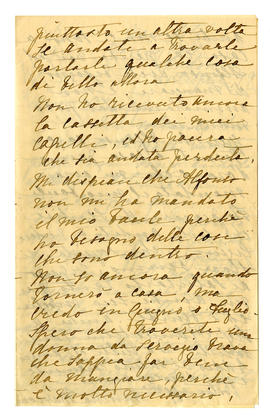 piuttosto un altra volta
se andate a trovarla
portarle qualche cosa
di bello allora
Non ho ricevuto ancora
la cassetta dei miei
capelli, ed ho paura
che sia andata perduta.
Mi dispiace che Alfonso
non mi ha mandato
il mio baule perchè
ho bisogno delle cose
che sono dentro.
Non so ancora quando
tornerò a casa, ma
credo in Giugno o Luglio
Spero che troverete una
donna da servizio brava
che sappia far bene
da mangiare, perchè
è molto necessario,